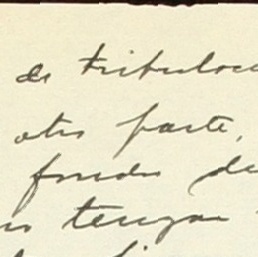 de tribulac
otra parte,
fondo de
tengan